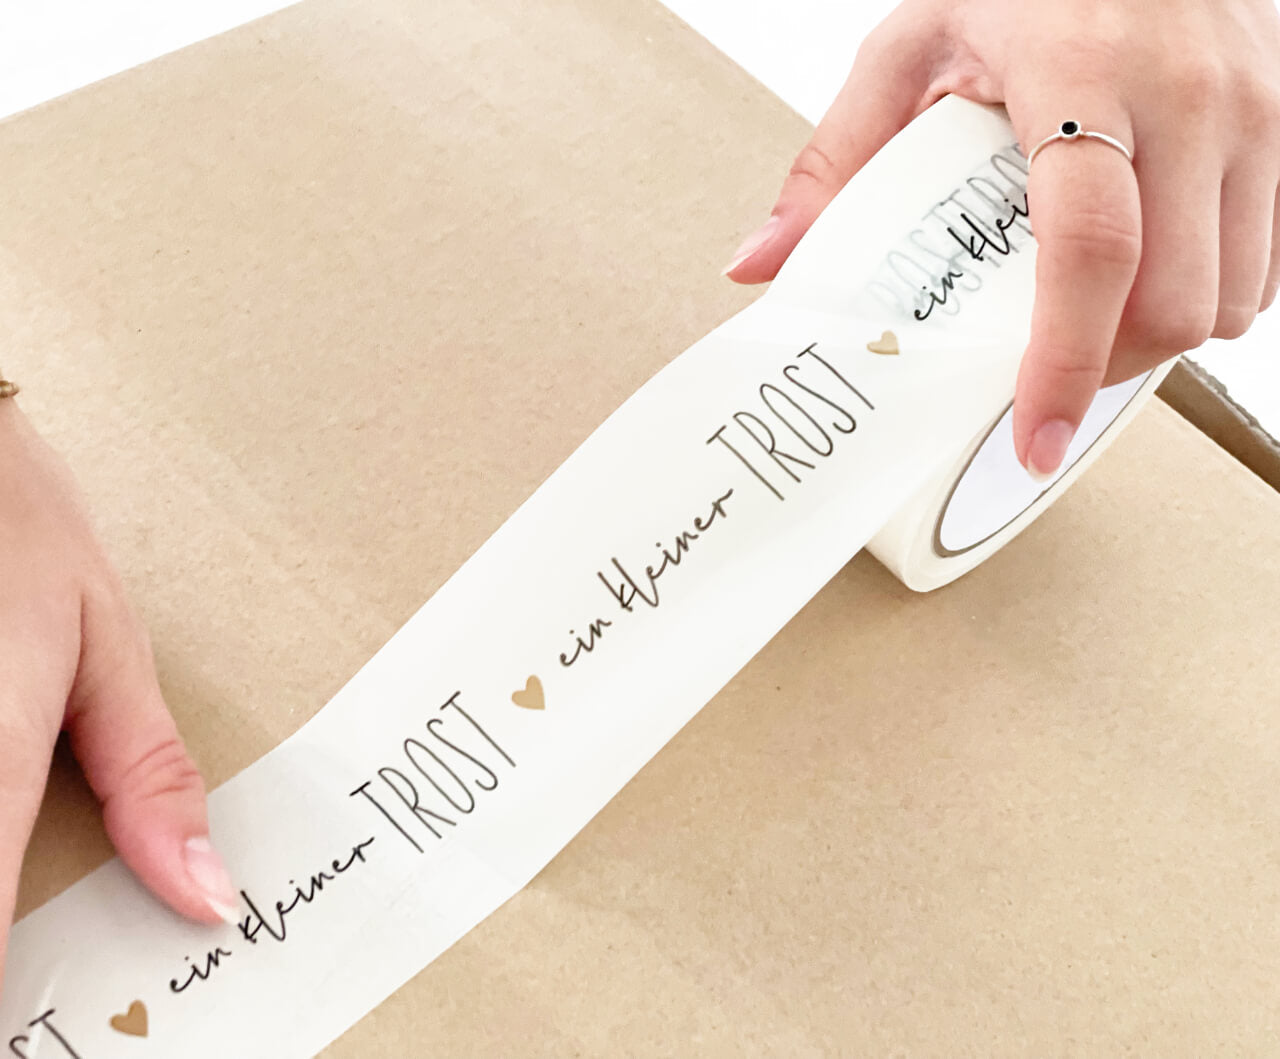 ST ♥ ein kleiner TROST ♥ ein kleiner TROST ♥ ein klei